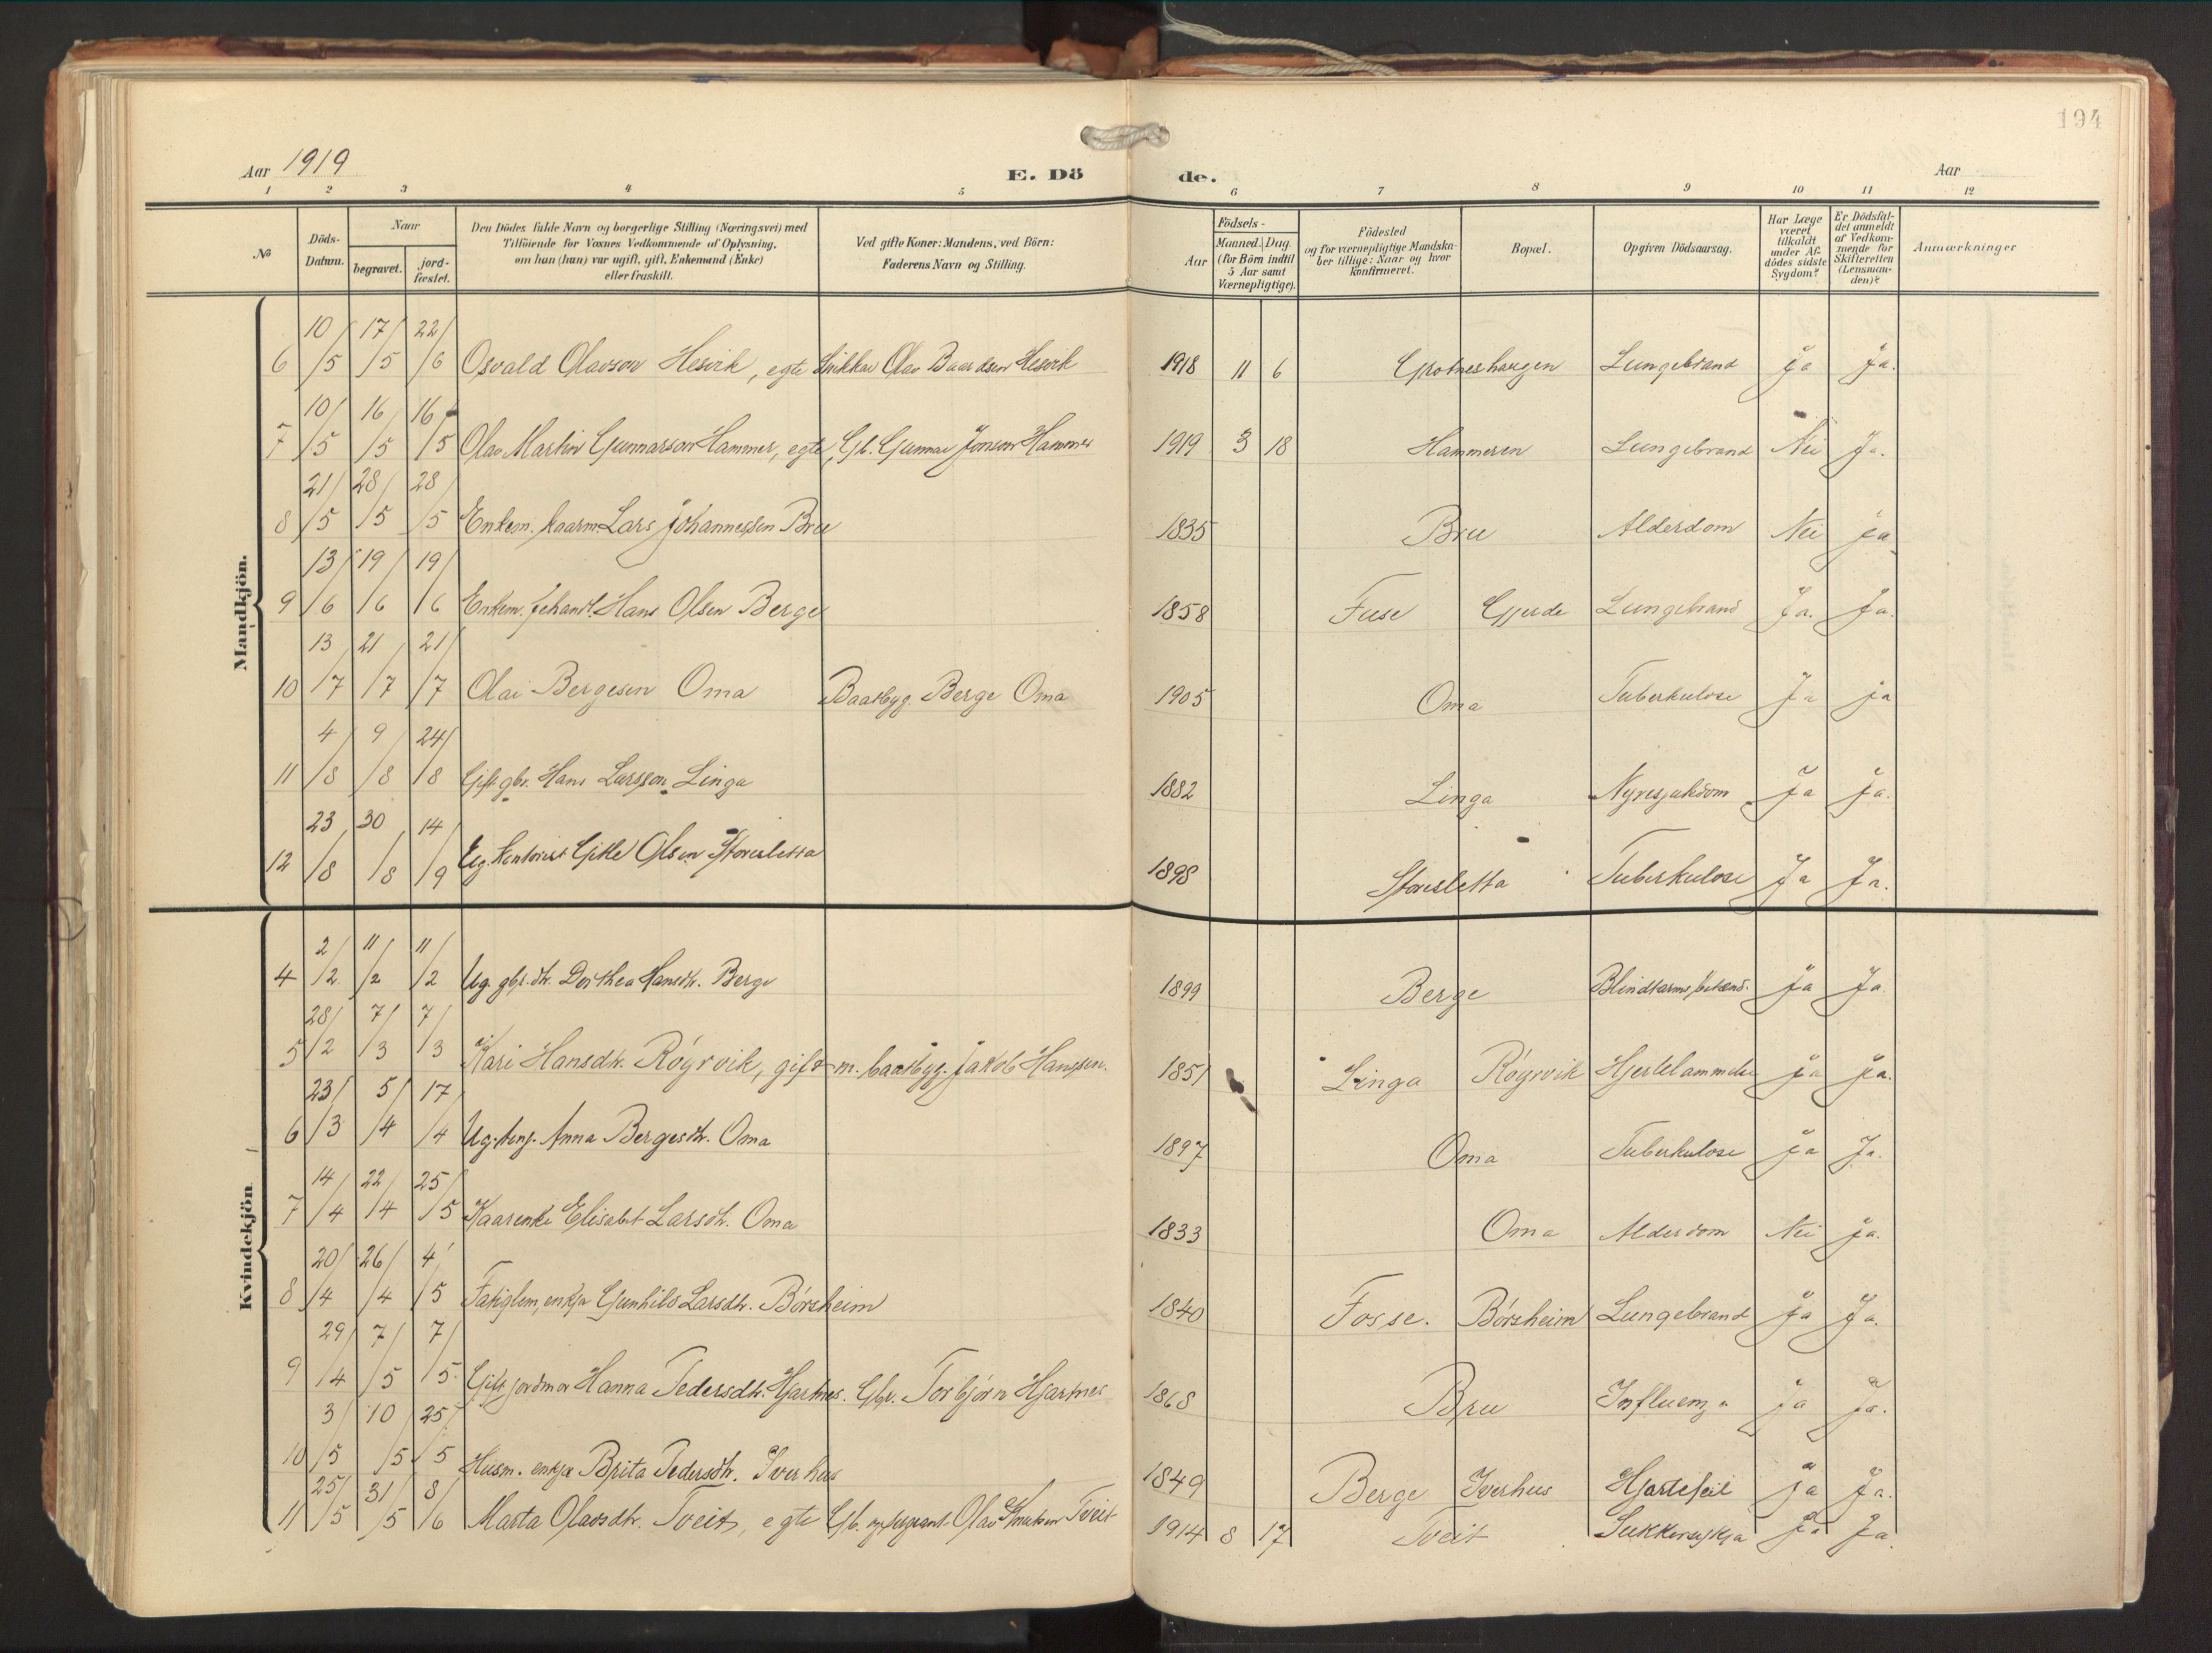 194
Aar 1919
E. Dö de.
Aar
1 2 3 4 5 6 7 8 9 10 11 12
№
Döds-Datum.
Naar
begravet.
jord-fæstet.
Den Dödes fulde Navn og borgerlige Stilling (Næringsvei) med
Tilföiende for Voxnes Vedkommende af Oplysning,
om han (hun) var ugift, gift, Enkemand (Enke)
eller fraskilt.
Ved gifte Koner: Mandens, ved Börn:
Faderens Navn og Stilling.
Födsels-
Aar
Maaned. Dag.
(for Börn indtil
5 Aar samt
Værnepligtige).
Födested
og for værnepligtige Mandska-
ber tillige: Naar og hvor
konfirmeret.
Bopæl.
Opgiven Dödsaarsag.
Har Læge
været
tilkaldt
under Af-
dödes sidste
Sygdom?
Er Dödsfal-
det anmeldt
af Vedkom-
mende for
Skifteretten
(Lensman-
den)?
Anmærkninger
Mandkjön.
6 10/5 17/5 22/6 Osvald Olavson Hesvik, egte Snikkar Olav Baardsen Hesvik 1918 11 6 Grotneshaugen Lungebrand Ja Ja.
7 10/5 16/5 16/5 Olav Martin Gunnarson Hammer, egte, Gb. Gunnar Jonson Hammer 1919 3 18 Hammeren Lungebrand Nei Ja.
8 21/5 28/5 28/5 Enkem. kaarm. Lars Johannessen Bru 1835 Bru Alderdom Nei ja
9 13/6 19/6 19/6 Enkem. fehandl. Hans Olsen Berge 1858 Fuse Gjerde Lungebrand Ja. Ja.
10 13/7 21/7 21/7 Olai Bergesen Oma Baatbyg. Berge Oma 1905 Oma Tuberkulose Ja ja
11 4/8 9/8 24/8 Gift gbr. Hans Larsson Linga 1882 Linga Nyresjukdom Ja Ja.
12 23/8 30/8 14/9 Ug. kontorist Gitle Olsen Storesletta 1898 Storesletta Tuberkulose Ja Ja.
Kvindekjön
4 2/2 11/2 11/2 Ug. gbr. dtr. Dorthea Hansdtr. Berge 1899 Berge Blindtarmsbetænd. Ja Ja
5 28/2 7/3 7/3 Kari Hansdtr. Röyrvik, gift m. baatbyg. Jakob Hanssen. 1851 Linga Röyrvik Hjertelammelse ja ja.
6 23/3 5/4 17/4 Ug. Anna Bergesdtr. Oma 1897 Oma Tuberkulose ja Ja.
7 14/4 22/4 25/5 Kaarenke Elisabet Larsdtr. Oma 1833 Oma Alderdom Nei ja.
8 20/4 26/4 4/5 Fatiglem, enkja Gunhild Larsdtr. Börsheim 1840 Fosse. Börsheim Lungebrand Ja Ja.
9 29/4 7/5 7/5 Gift jordmor Hanna Pedersdtr. Hjartnes. Gbr. Torbjörn Hjartnes 1868 Bru Influenza Ja Ja.
10 3/5 10/5 25/5 Husm. enkja Brita Pedersdtr. Iverhus 1849 Berge Iverhus Hjartefeil ja Ja.
11 25/5 31/5 8/6 Marta Olavsdtr. Tveit, egte Gb. og sergeant Olav Tveit 1914 8 17 Tveit Sukkersykja Ja Ja